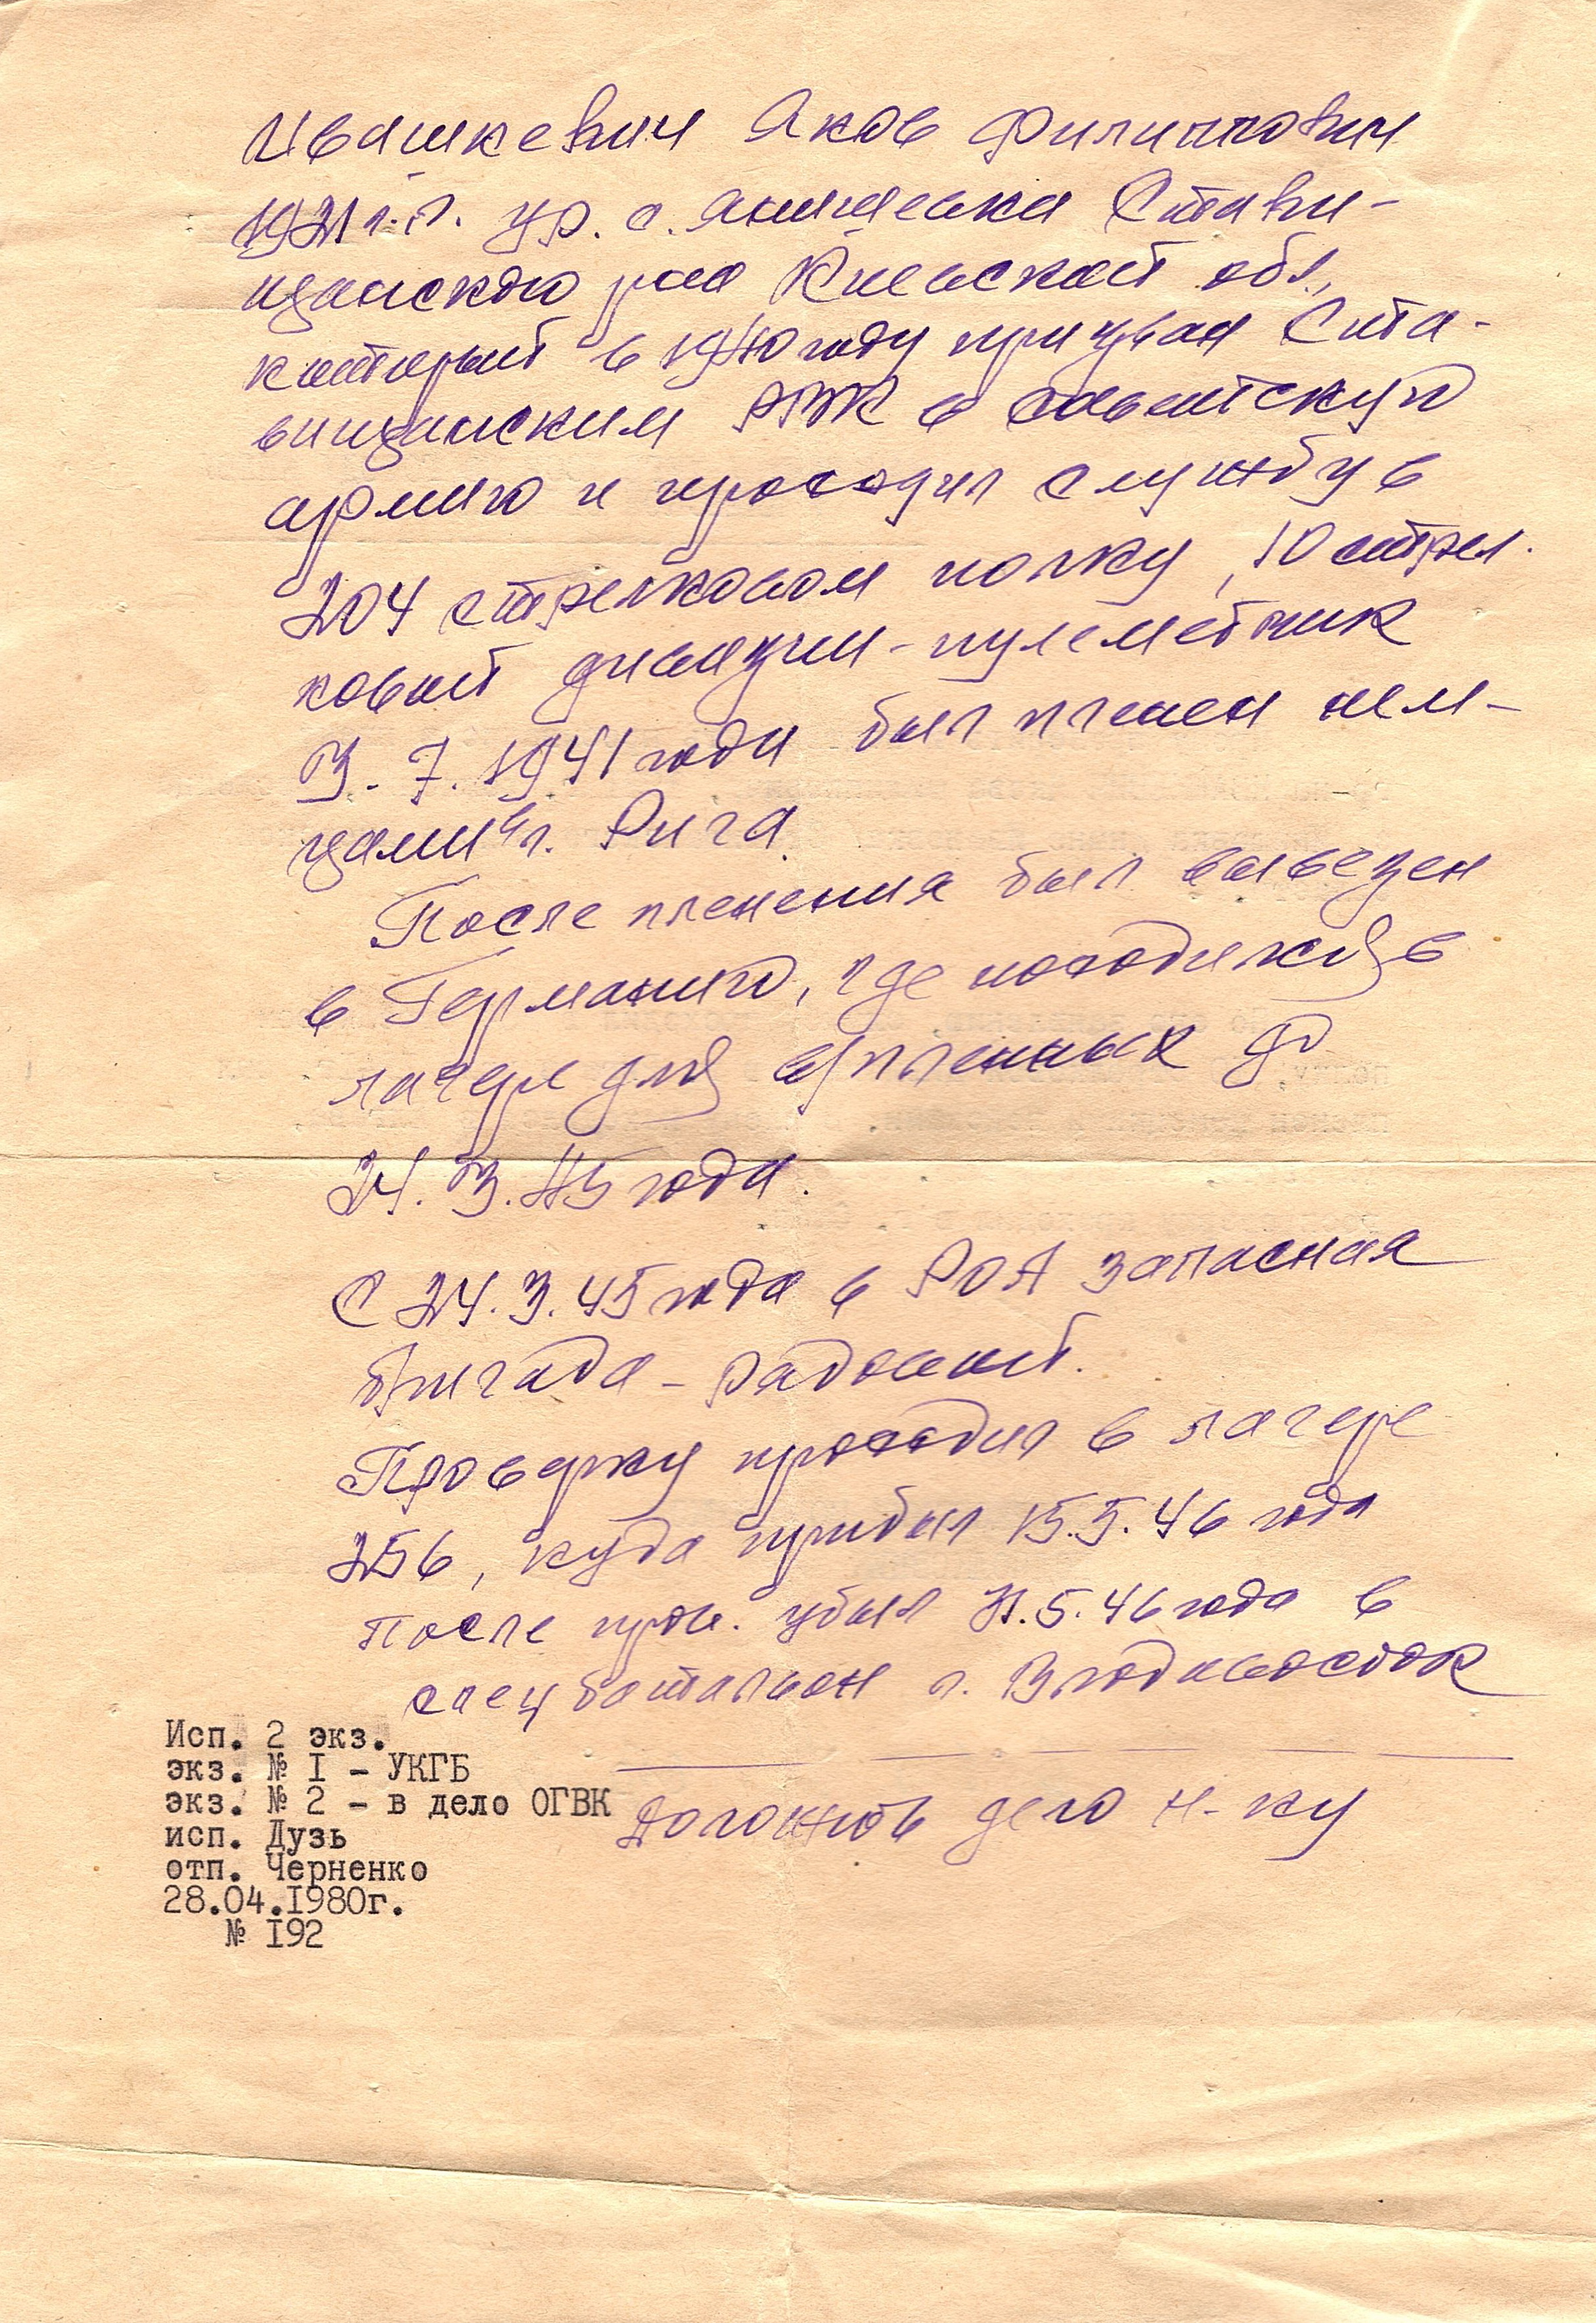 Ивашкевич Яков Филиппович
1921 г.р. ур. с. Янишевка Стави-
щанского р-на Киевской обл.,
который в 1940 году призван Ста-
вищанским РВК в Советскую
армию и проходил службу в
204 стрелковом полку, 10 стрел.
ковой дивизии - пулеметчик
3.7.1941 года был пленен нем-
цами в г. Рига.
После пленения был вывезен
в Германию, где находился в
лагере для в/пленных до
24.3.45 года.
С 24.3.45 года в РОА запасная
бригада - рядовой.
Проверку проходил в лагере
256, куда прибыл 15.5.46 года
После пров. убыл 21.5.46 года в
спец батальон г. Владивосток
Доложить дело н-ку
Исп. 2 экз.
экз. № I - УКГБ
экз. № 2 - в дело ОГВК
исп. Дузь
отп. Черненко
28.04.I980г.
№ I92